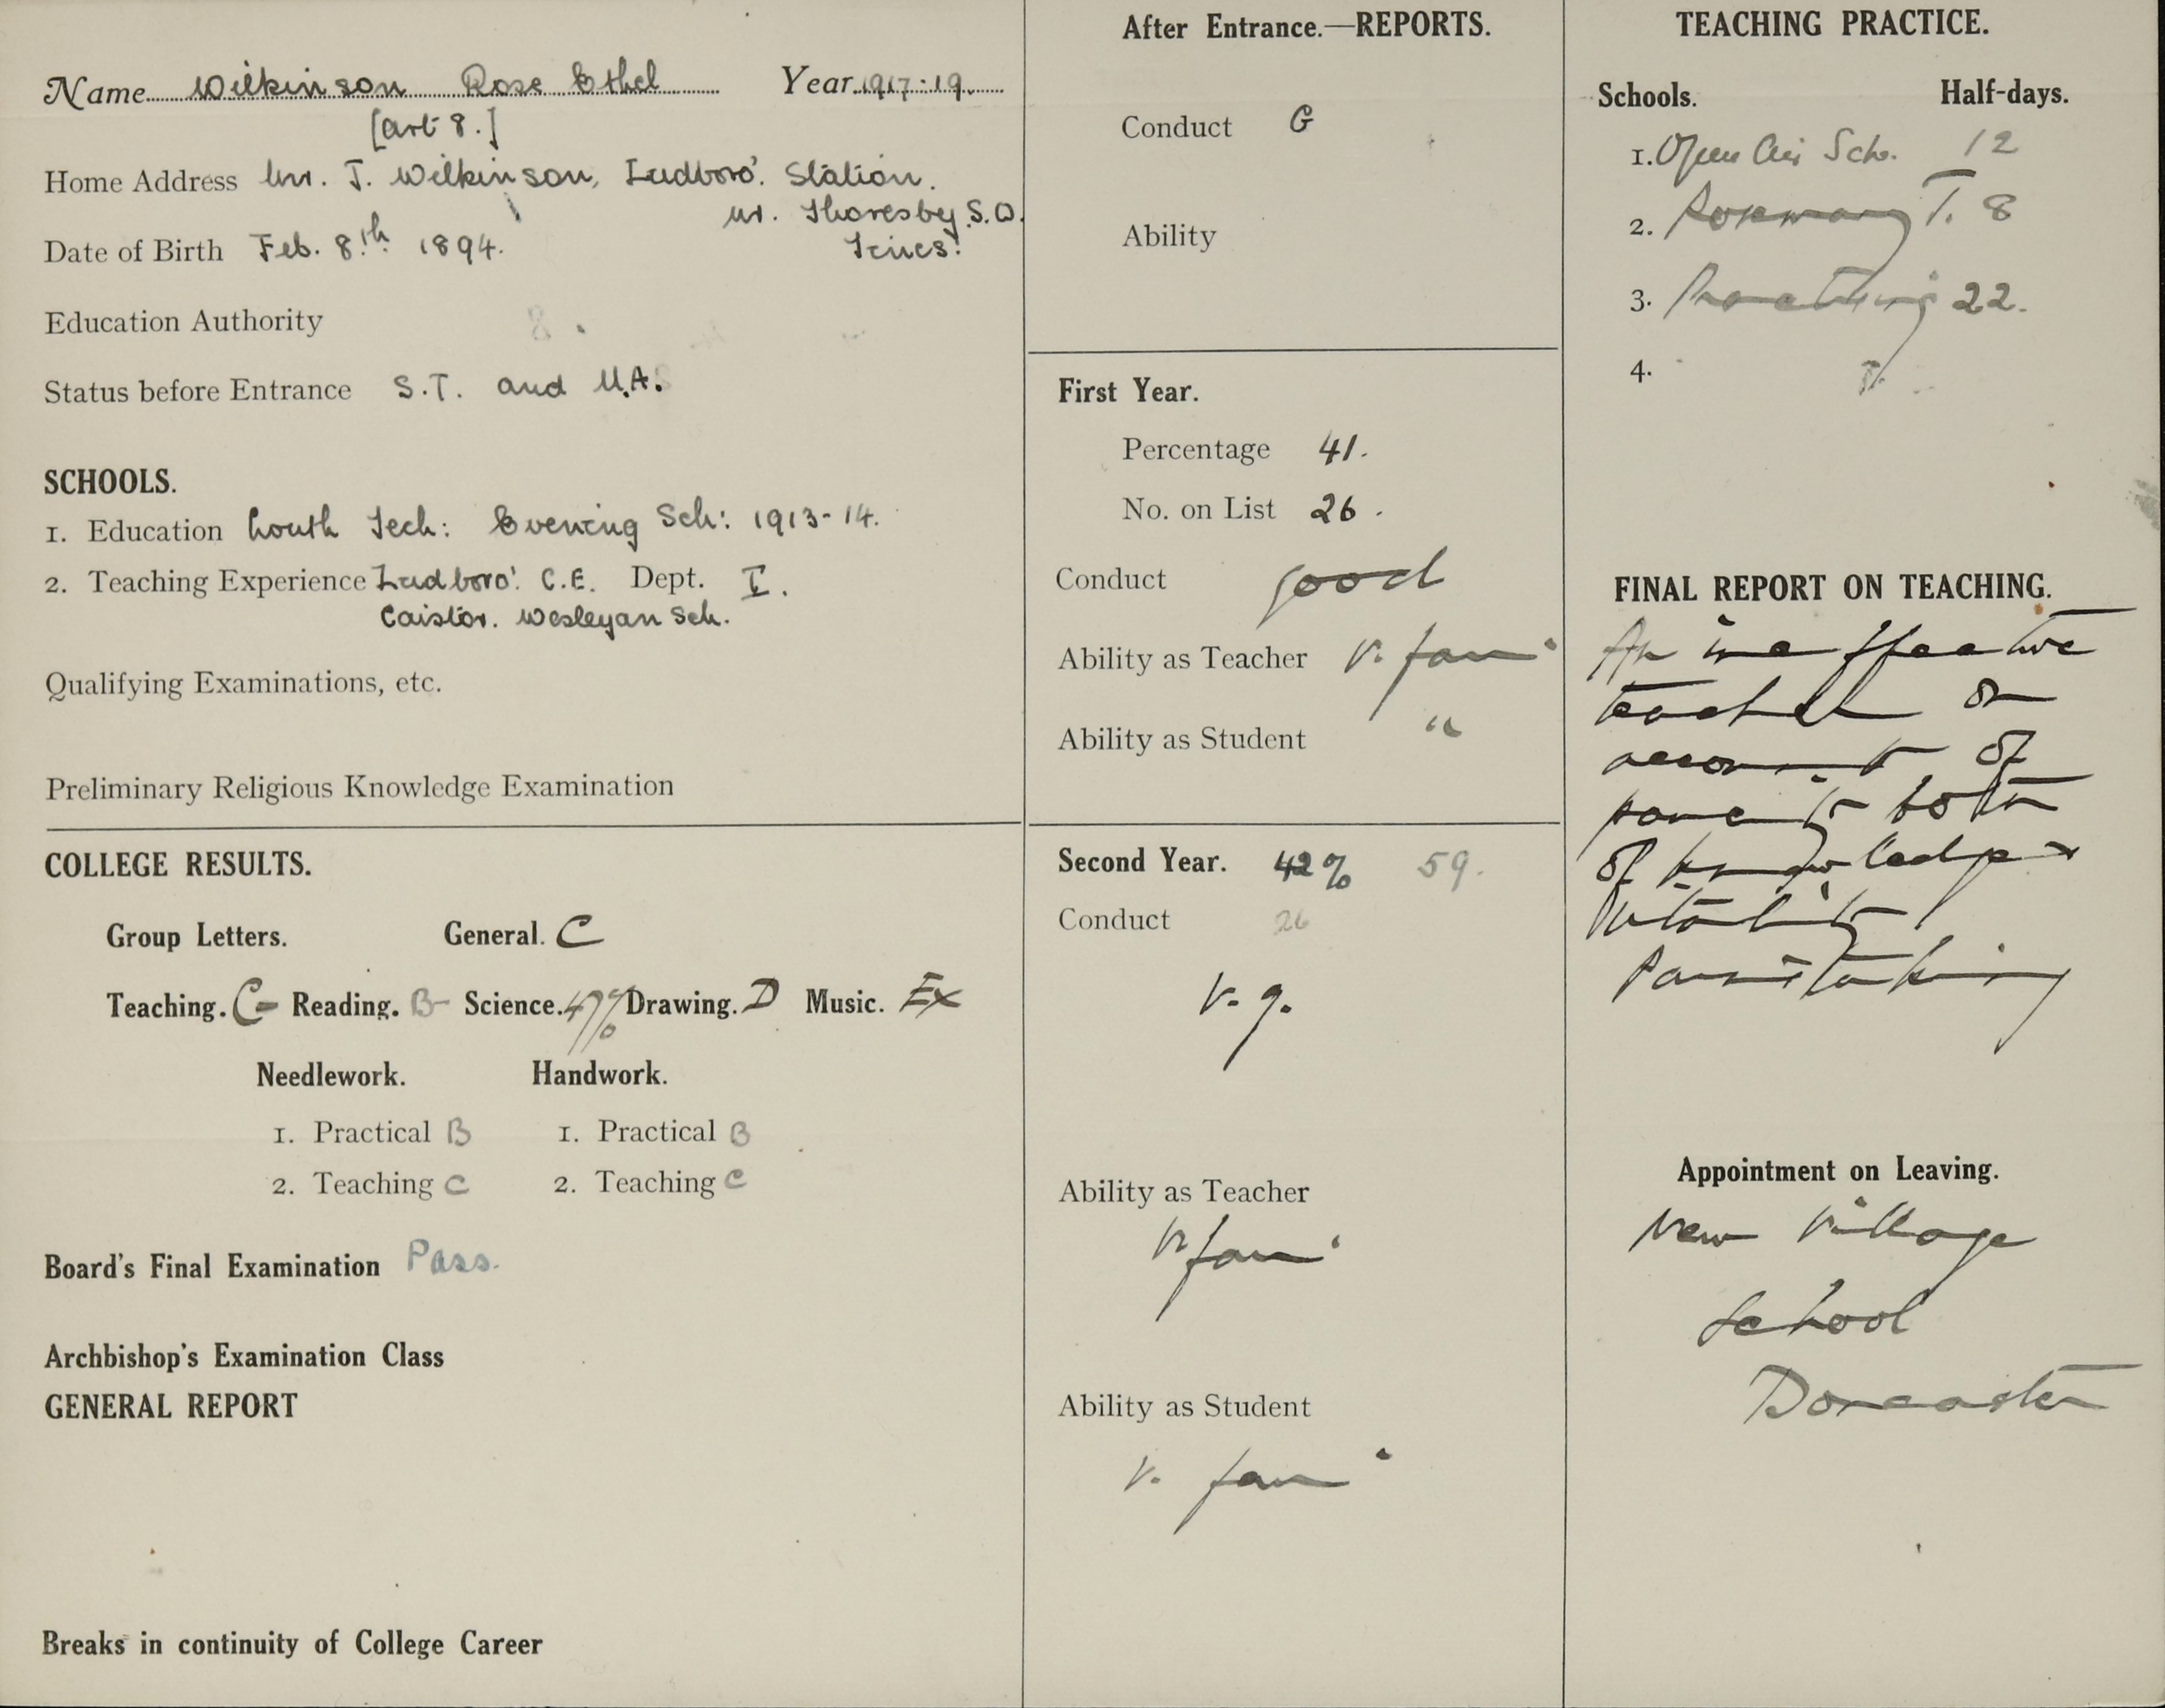 Name Wilkinson Rose Ethel Year 1917-19.
[art 8.]
Home Address Mr. T. Wilkinson, Ludboro'. Station.
nr. Thoresby S.O.
Lincs.
Date of Birth Feb. 8th 1894.
Education Authority
Status before Entrance S.T. and U.A.
SCHOOLS.
1. Education Louth Tech: Evening Sch: 1913-14.
2. Teaching Experience Ludboro'. C.E. Dept. I.
Caistor. Wesleyan Sch.
Qualifying Examinations, etc.
Preliminary Religious Knowledge Examination
COLLEGE RESULTS.
Group Letters. General. C
Teaching. C- Reading. B- Science. 47% Drawing. D Music. Ex
Needlework. Handwork.
1. Practical B 1. Practical B
2. Teaching C 2. Teaching C
Board's Final Examination Pass.
Archbishop's Examination Class
GENERAL REPORT
Breaks in continuity of College Career
After Entrance.—REPORTS.
Conduct G
Ability
First Year.
Percentage 41.
No. on List 26.
Conduct good
Ability as Teacher v. fair
Ability as Student "
Second Year. 42% 59.
Conduct 26
v. g.
Ability as Teacher
v. fair
Ability as Student
v. fair
TEACHING PRACTICE.
Schools. Half-days.
1. Open Air Sch. 12
2. Rosemary T. 8
3. Practising 22.
4.
FINAL REPORT ON TEACHING.
An ineffective
teacher on
account of
poverty both
of knowledge &
vitality
Painstaking
Appointment on Leaving.
New Village
School
Doncaster